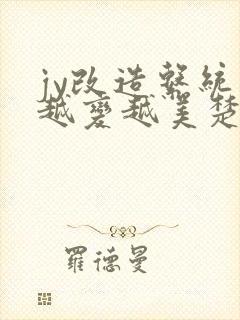 jy改造系統
越變越美楚
羅德曼